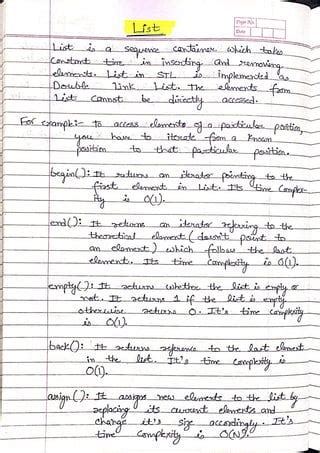 Page No.
Date
List
List is a sequence container which takes
constant time in inserting and removing
elements. List in STL is implemented as
Double Link List. The elements from
List cannot be directly accessed.
For example:- To access elements of a particular position,
you have to iterate from a known
position to that particular position.
begin(): It returns an iterator pointing to the
first element in List. Its time Comple-
ity is O(1).
end(): It returns an iterator referring to the
theoretical element (doesn't point to
an element) which follows the last
element. Its time Complexity is O(1).
empty(): It returns whether the list is empty or
not. It returns 1 if the list is empty
otherwise returns 0. It's time complexity
is O(1).
back(): It returns reference to the last element
in the list. It's time Complexity is
O(1).
assign(): It assigns new elements to the list by
replacing its current elements and
change it's size accordingly. It's
time Complexity is O(N).